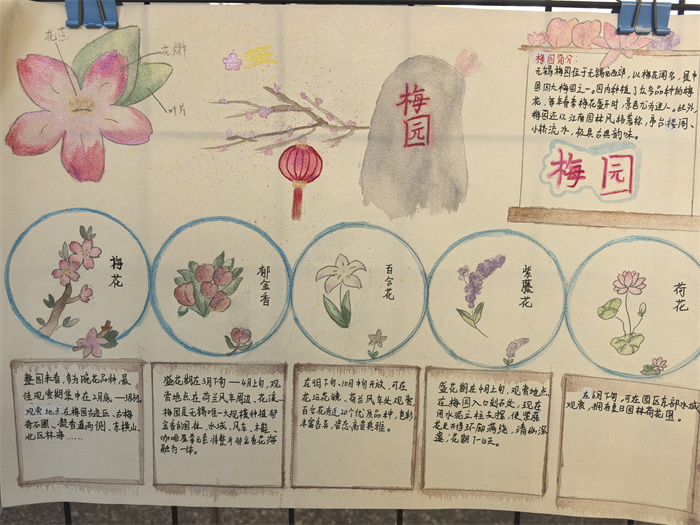 花蕊
花瓣
叶片
梅
园
梅园简介:
无锡梅园位于无锡的西郊,以梅花闻名,是中
国四大梅园之一。园内种植了众多品种的梅
花,每年春季梅花盛开时,景色尤为迷人。此外,
梅园还以江南园林风格著称,亭台楼阁、
小桥流水,极具古典韵味。
梅园
梅花
郁金香
百合花
紫藤花
荷花
整园来看,多为晚花品种,最
佳观赏期集中在2月底一3月初
观赏地点在梅园古迹区、古梅
奇石圃、
道两侧、东横山、
北区林海……
盛花期在3月下旬一4月上旬,观
赏地点在荷兰风车周边、花溪。
梅园是无锡唯一大规模种植郁
金香的园林,水域、风车、木鞋、
咖啡屋等元素将整片郁金香花海
融为一体。
花坛花镜、荷兰风车处观赏。
百合花有近20个优质品种,色彩
丰富各异,姿态高贵典雅。
盛花期在4月上旬,观赏地点
在梅园入口刻石处,现在
用水泥立柱支撑,使紫藤
花盛开得环假满绕,清幽深
邃,花期7-10天。
在6月下旬,可在园区东部水域
观赏,拥有夏日园林荷花图。